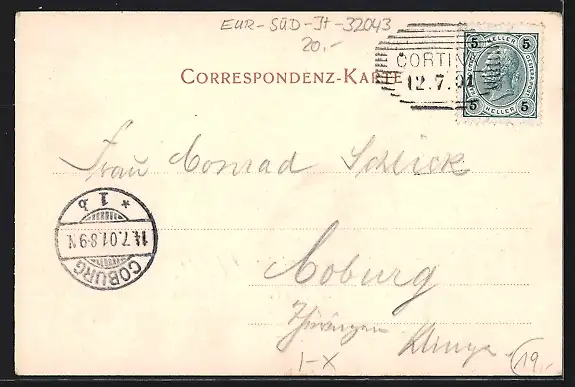 EUR-SÜD-It-32043
20.-
CORRESPONDENZ-KARTE
CORTINA
12.7.01
5 HELLER 5
5 HELLER 5
Frau Conrad Schlick
* 1 b
14.7.01.8-9 N.
COBURG
Coburg
Thüringen
I-X
19.-